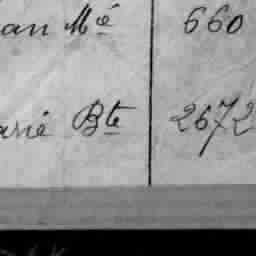 an Mé 660
arié Bte 2672